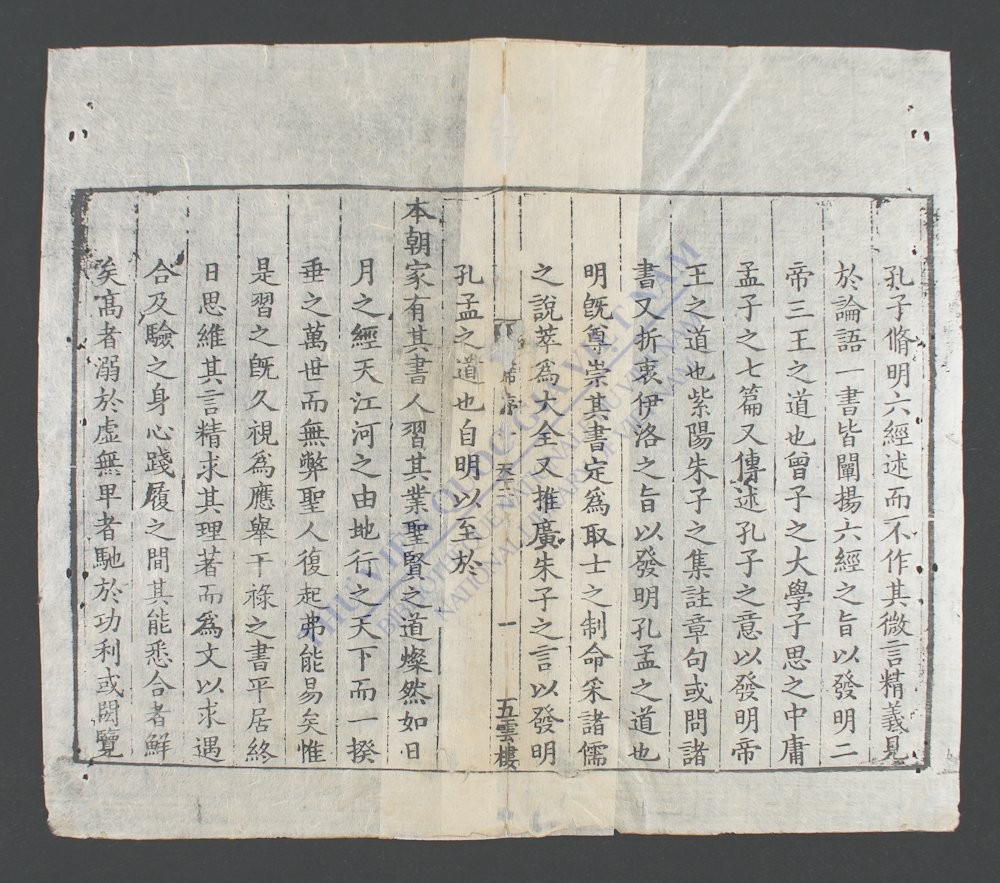 孔子脩明六經述而不作其微言精義見
於論語一書皆闡揚六經之旨以發明二
帝三王之道也曾子之大學子思之中庸
孟子之七篇又傳述孔子之意以發明帝
王之道也紫陽朱子之集註章句或問諸
書又折衷伊洛之旨以發明孔孟之道也
明旣尊崇其書定爲取士之制命采諸儒
之說萃爲大全又推廣朱子之言以發明
序一
一
五雲樓
孔孟之道也自明以至於
本朝家有其書人習其業聖賢之道燦然如日
月之經天江河之由地行之天下而一揆
垂之萬世而無弊聖人復起弗能易矣惟
是習之旣久視爲應舉干祿之書平居終
日思維其言精求其理著而爲文以求遇
合及驗之身心踐履之間其能悉合者鮮
矣高者溺於虛無卑者馳於功利或閱覽
THƯ VIỆN QUỐC GIA VIỆT NAM
NATIONAL LIBRARY OF VIETNAM